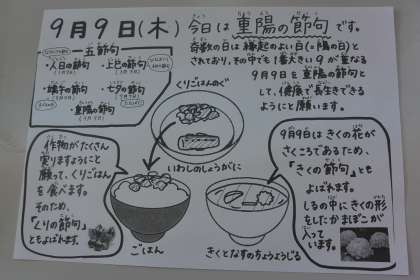 9月9日(木) 今日は重陽の節句です。
五節句
・人日の節句
(1月7日)
・上巳の節句
(3月3日)
・端午の節句
(5月5日)
・七夕の節句
(7月7日)
・重陽の節句
(9月9日)
奇数の日は縁起のよい日(=陽の日)と
されており、その中でも1番大きい9が重なる
9月9日を重陽の節句と
して、健康で長生きできる
ようにと願います。
くりごはんのぐ
いわしのしょうがに
作物がたくさん
実りますようにと
願って、くりごはん
を食べます。
そのため、
「くりの節句」
ともよばれます。
ごはん
きくとなすのちょうようじる
9月9日はきくの花が
さくころであるため、
「きくの節句」とも
よばれます。
しるの中にきくの形
をしたかまぼこが
入って
います。